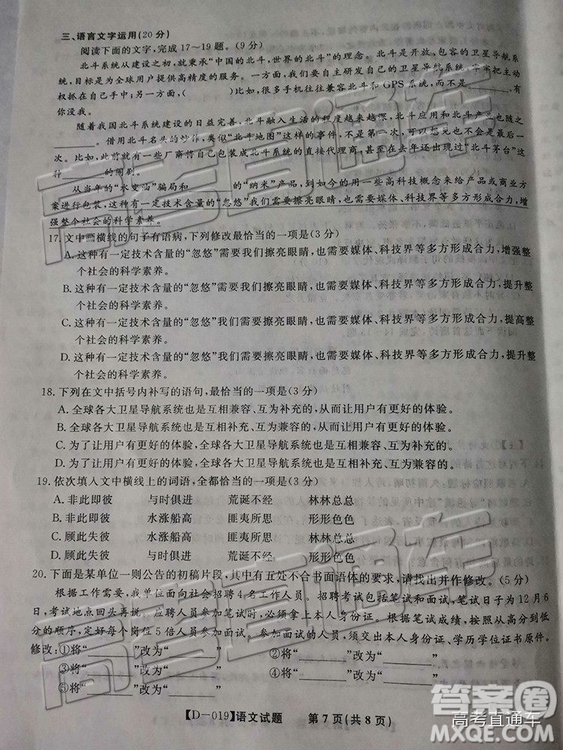 三、语言文字运用(20分)
阅读下面的文字,完成17～19题。(9分)
北斗系统从建设之初起,就秉承“中国的北斗,世界的北斗”的理念。北斗是开放、包容的卫星导航
系统,也是为了给全球用户提供高精度的服务。一方面,我们自主研发自己的卫星导航系统,掌握主动
权,抓在自己手中;另一方面,(　　)比如,很多手机往往兼容北斗和GPS系统,而不是________,有
你没我。
随着我国北斗系统建设的日益完善,北斗融入生活的程度越来越深,北斗应用和北斗产品也随之
________。借用北斗名头的炒作,类似“北斗地图”这样的事件,不是第一次,
次。比如,此前有的厂商竹自己包装成品北斗系统的直接代理商,甚至在去年还出现过“北斗茅台”这
行________的闹剧。
从当年的“水变油”骗局和________的“纳米”产品,到如今,一些用高科技概念来给产品或商业方
案进行包装,这种有一定技术含量的“忽悠”我们需要擦亮眼睛,也需要媒体、科技界等多方形成合力,增
强整个社会的科学素养。
17.文中画横线的句子有语病,下列修改最恰当的一项是(3分)
A.这种有一定技术含量的“忽悠”需要我们擦亮眼睛,也需要媒体、科技界等多方形成合力,增强整
个社会的科学素养。
B.这种有一定技术含量的“忽悠”需要我们擦亮眼睛,也需要媒体、科技界等多方形成合力,提升整
个社会的科学素养。
C.这种有一定技术含量的“忽悠”我们需要擦亮眼睛,也需要媒体、科技界等多方形成合力,提高整
个社会的科学素养。
D.这种有一定技术含量的“忽悠”我们需要擦亮眼睛,需要媒体、科技界等多方形成合力,提升整
个社会的科学素养。
18.下列在文中括号内补写的语句,最恰当的一项是(3分)
A.全球各大卫星导航系统也是互相兼容、互为补充的,从而让用户有更好的体验。
B.全球各大卫星导航系统也是互相兼容、互为补充的,从而让用户有更好的体验。
C.为了让用户有更好的体验,全球各大卫星导航系统也是互相兼容、互为补充的。
D.为了让用户有更好的体验,全球各大卫星导航系统也是互相兼容、互为补充的。
19.依次填入文中横线上的词语,全都恰当的一项是(3分)
A.非此即彼　与时俱进　荒诞不经　林林总总
B.非此即彼　水涨船高　匪夷所思　形形色色
C.顾此失彼　水涨船高　匪夷所思　林林总总
D.顾此失彼　与时俱进　荒诞不经　形形色色
20.下面是某单位一则公告的初稿片段,其中有五处不合书面语体的要求,请找出并作修改。(5分)
根据工作需要,我单位面向社会招聘4名工作人员。招聘考试包括笔试和面试,笔试日子为12月6
日,考试地点回头再说。应聘人员参加笔试时,必须拿上本人身份证。我们根据笔试成绩,按照从高分到低
分的顺序,定好每个岗位5倍人员参加面试。参加面试的人员,须交出本人身份证、学历学位证书原件。
修改:①将“________”改为“________”　②将“________”改为“________”
③将“________”改为“________”　④将“________”改为“________”
⑤将“________”改为“________”
【D－019】语文试题　第7页(共8页)
高考直通车
高考直通车
答案圈
高考直通车